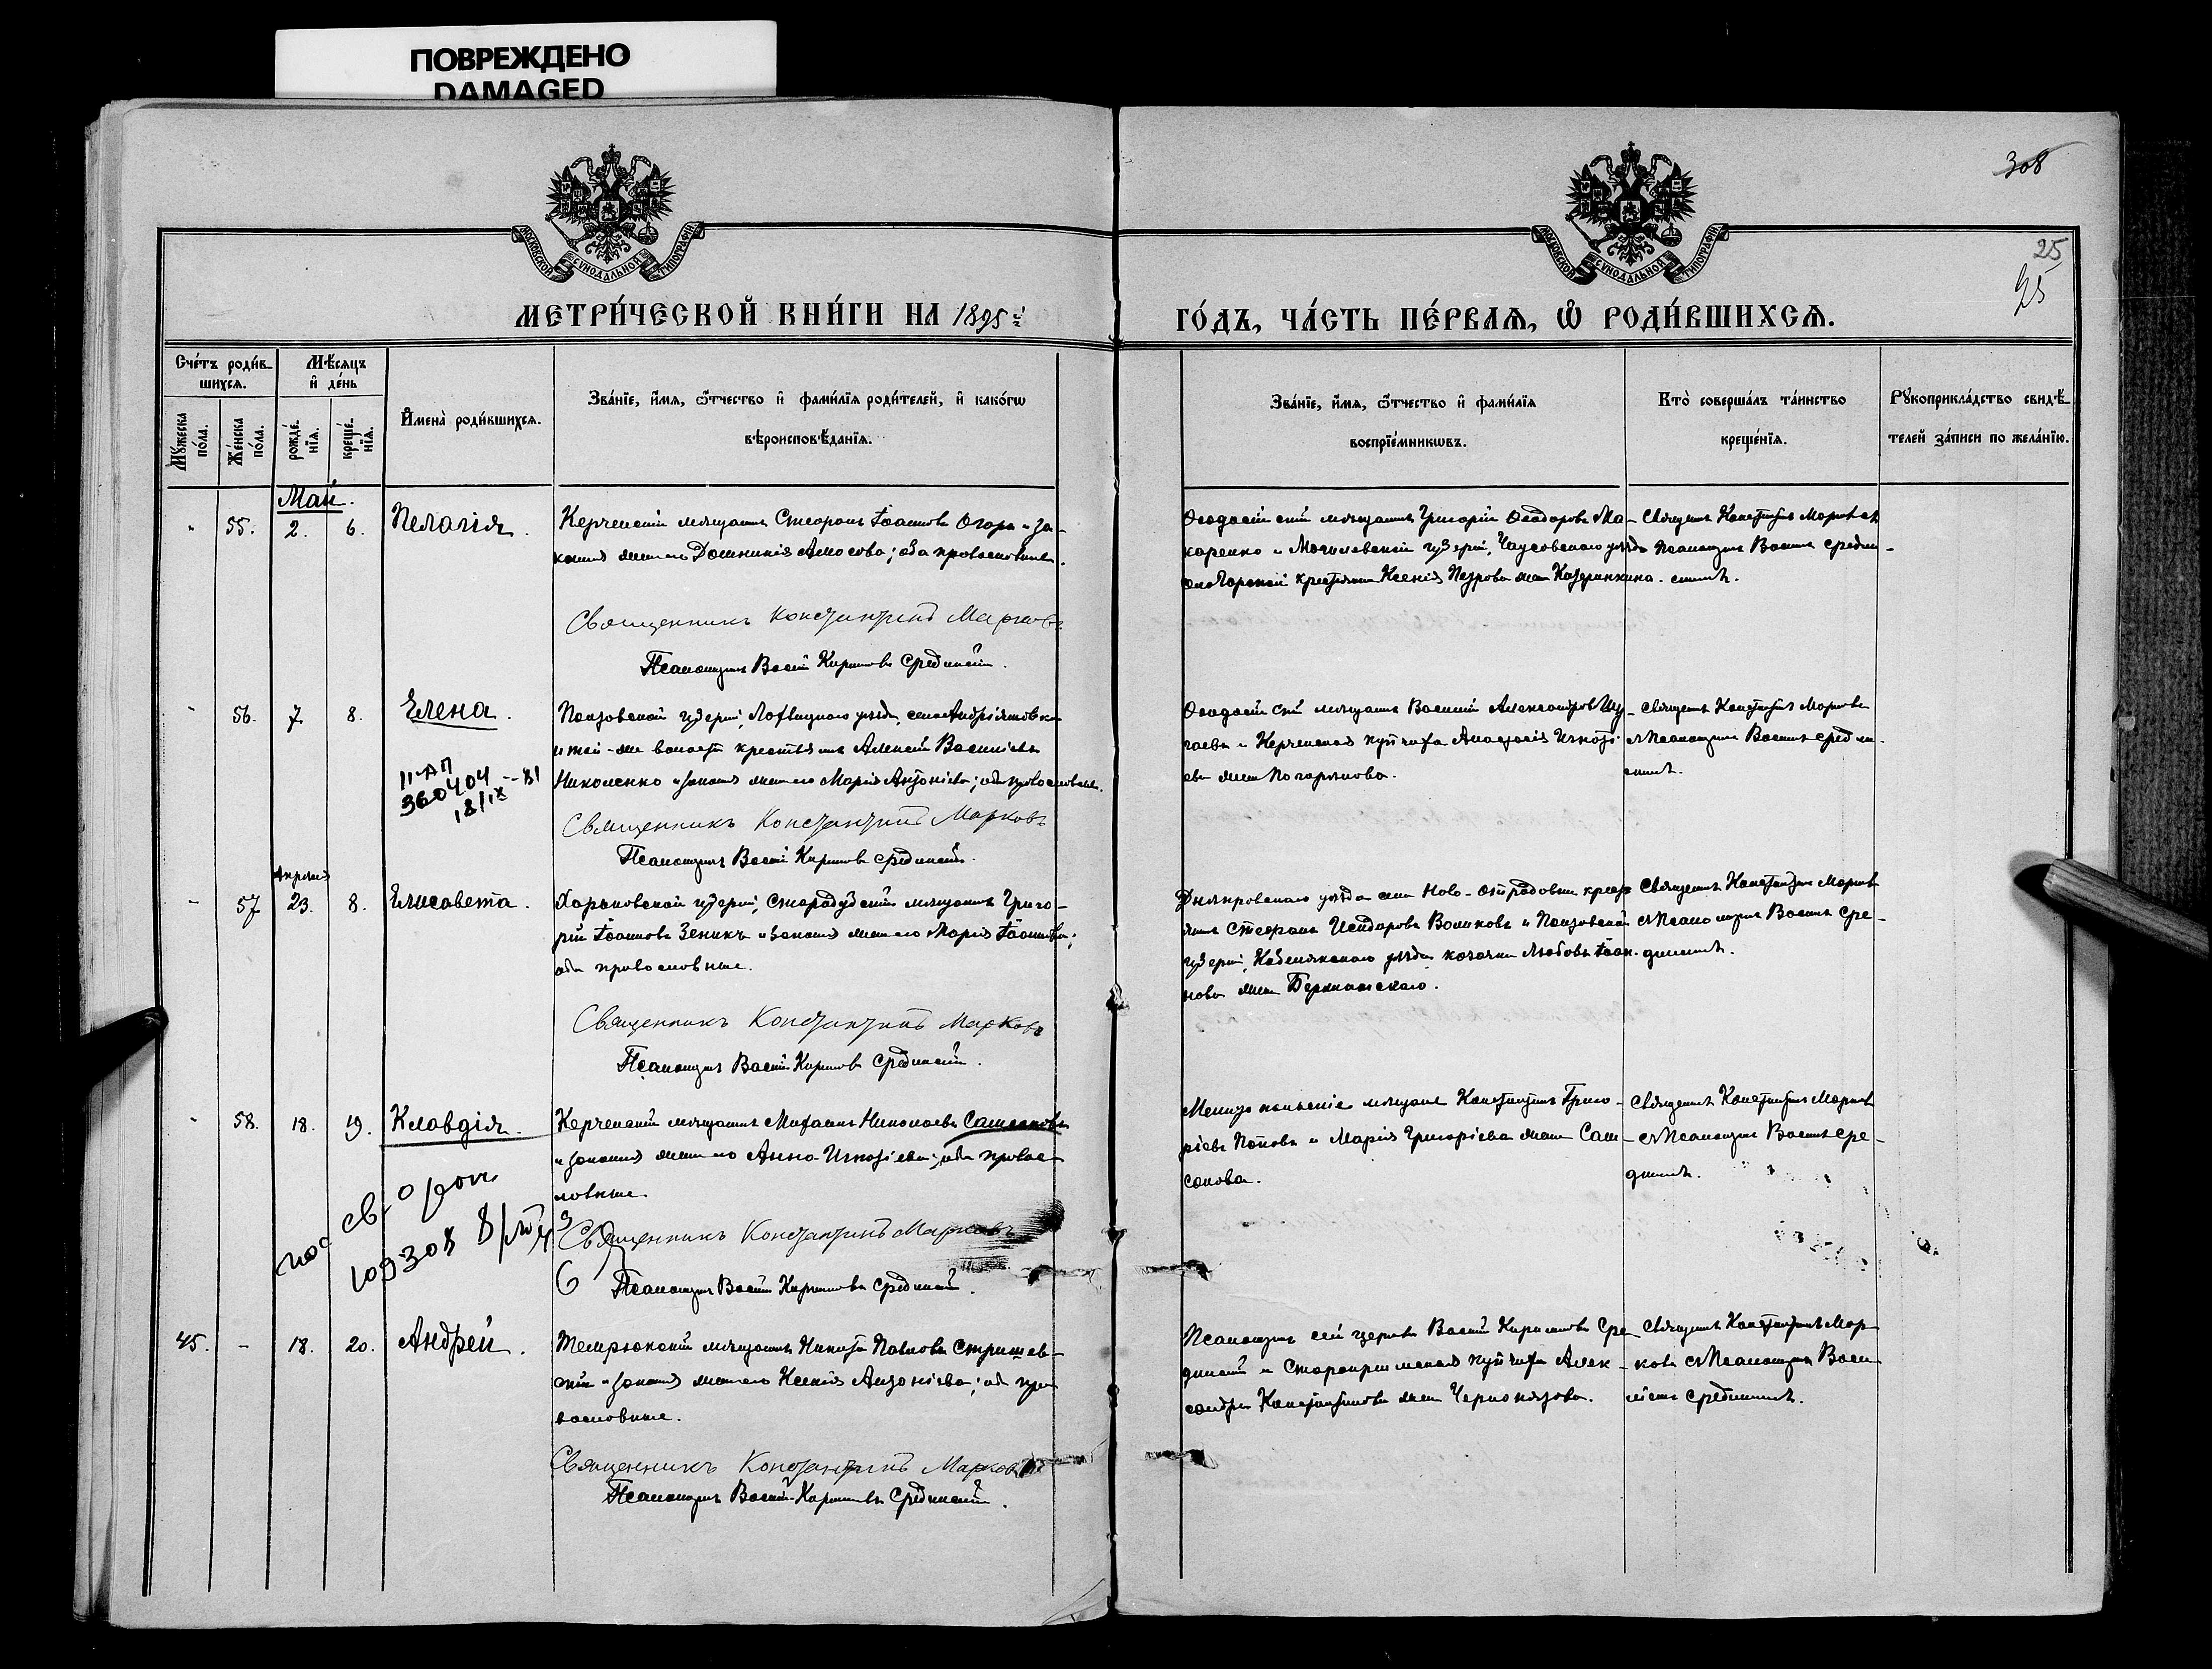 ПОВРЕЖДЕНО
DAMAGED
308
25
25
МОСКОВСКОЙ СУНОДАЛЬНОЙ ТИПОГРАФІИ
МОСКОВСКОЙ СУНОДАЛЬНОЙ ТИПОГРАФІИ
МЕТРИ́ЧЕСКОЙ КНИ́ГИ НА 1895й
ГО́ДЪ, ЧА́СТЬ ПЕ́РВАЯ, Ѡ҆ РОДИ́ВШИХСЯ.
Сче́тъ роди́в-
шихся.
Мꙋжеска по́ла.
Же́нска по́ла.
Мѣ́сяцъ
и҆ де́нь
рожде́-
нїя.
креще́-
нїя.
И҆мена̀ роди́вшихся.
Зва́нїе, и҆́мя, ѻ҆́тчество и҆ фами́лїя роди́телей, и҆ како́гѡ
вѣроисповѣ́данїя.
Зва́нїе, и҆́мя, ѻ҆́тчество и҆ фами́лїя
воспрїе́мникѡвъ.
Кто̀ соверша́лъ та́инство
креще́нїя.
Рꙋкоприкла́дство свидѣ́-
телей за́писи по жела́нїю.
Май.
55. 2. 6. Пелагія.
Керченскій мѣщанинъ Стефанъ Іоанновъ Огорь и за-
конная жена его Домникія Амосова; оба православные.
Священникъ Константинъ Марковъ
Псаломщикъ Василій Кирилловъ Срединскій.
Ѳеодосійскій мѣщанинъ Григорій Ѳеодоровъ Ма-
каренко и Могилевской губерніи, Чаусовскаго уѣзда
крестьянка Ксенія Петрова
Священникъ Константинъ Марковъ съ
Псаломщикомъ Василіемъ Средин-
скимъ.
56. 7. 8. Елена.
Полтавской губерніи, Лохвицкаго уѣзда, села Андріяшовки
и той-же волости крестьянинъ Алексѣй Василіевъ
Николенко и законная жена его Марія Антоніева; оба православные.
II-АП
360404
18/IX--81
Священникъ Константинъ Марковъ
Псаломщикъ Василій Кирилловъ Срединскій.
Ѳеодосійскій мѣщанинъ Василій Александровъ Шу-
гаевъ и Керченская купчиха Анастасія Игнаті-
ева жена Погорѣлова.
Священникъ Константинъ Марковъ
съ Псаломщикомъ Василіемъ Средин-
скимъ.
Апрѣля
57 23. 8. Елисавета.
Харьковской губерніи, мѣщанинъ Григо-
рій Іоанновъ Зеникъ и законная жена его Марія Іоаннова;
оба православные.
Священникъ Константинъ Марковъ
Псаломщикъ Василій Кирилловъ Срединскій.
Днѣпровскаго уѣзда села Ново-Отрадовки кресть-
янинъ Стефанъ Исидоровъ Воликовъ и Полтавской
губерніи, Кобелякскаго уѣзда казачка Любовь Іоан-
нова жена
Священникъ Константинъ Марковъ
съ Псаломщикомъ Василіемъ Сре-
динскимъ.
58. 18. 19. Клавдія.
Керченскій мѣщанинъ Михаилъ Николаевъ Самсоновъ
и законная жена его Анна Игнатіева; оба правос-
лавные.
пос св. о рож.
109308
Священникъ Константинъ Марковъ
Псаломщикъ Василій Кирилловъ Срединскій.
Мелитопольскіе мѣщане Константинъ Григо-
ріевъ Поповъ и Марія Григоріева жена Сам-
сонова.
Священникъ Константинъ Марковъ
съ Псаломщикомъ Василіемъ Сре-
динскимъ.
45. - 18. 20. Андрей.
Темрюкскій мѣщанинъ Никита Павловъ Стришев-
скій и законная жена его Ксенія Антоніева; оба пра-
вославные.
Священникъ Константинъ Марковъ
Псаломщикъ Василій Кирилловъ Срединскій.
Псаломщикъ сей церкви Василій Кирилловъ Сре-
динскій и Старокрымская купчиха Алек-
сандра Константинова жена Чернокязова.
Священникъ Константинъ Мар-
ковъ съ Псаломщикомъ Васи-
ліемъ Срединскимъ.